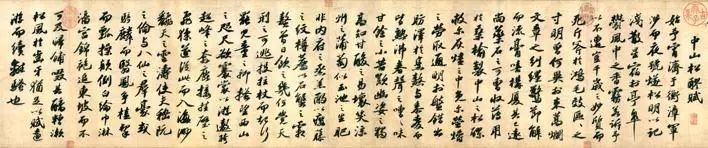 中山松醪賦
始予宵濟於衡漳軍
涉而夜號燧松明以記
淺散星宿於亭皋
鬱風中之香霧若訴予
以不遭豈千歲之妙質而
死斤斧於鴻毛效區區之
寸明曾何異於束蒿爛
文章之糾纏驚節解
而流膏嗟構廈其已遠
尚藥石之可曹收薄用
於桑榆製中山之松醪
救爾灰燼之中免爾螢爝
之勞取通明於盤錯出
肪澤於烹熬與黍麥而
皆熟沸舂聲之嘈嘈味
甘餘之小苦歎幽姿之獨
高知甘酸之易壞笑涼
州之蒲萄似玉池之生肥
非內府之蒸羔酌以癭藤
之紋樽薦以石蟹之霜
螯曾日飲之幾何覺天
刑之可逃投拄杖而起行
罷兒童之抑搔望西山
之咫尺欲褰裳以遊遨跨
超峰之奔鹿接掛壁之
飛猱遂從此而入海渺
翻天之雲濤使夫嵇阮
之倫與八仙之群豪或
騎麟而翳鳳爭榼挈
而瓢操顛倒白綸巾淋
漓宮錦袍追東坡而不
可及歸餔歠其醨糟漱
松風於齒牙猶足以賦遠
遊而續離騷也